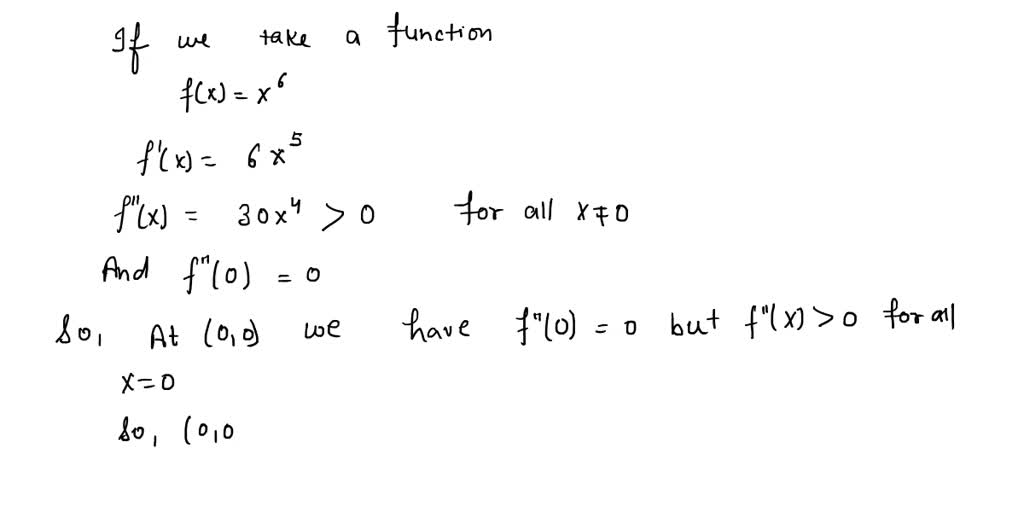 If we take a function
f(x) = x⁶
f'(x) = 6x⁵
f"(x) = 30x⁴ > 0 for all x ≠ 0
And f"(0) = 0
So, At (0,0) we have f"(0) = 0 but f"(x) > 0 for all
x = 0
So, (0,0